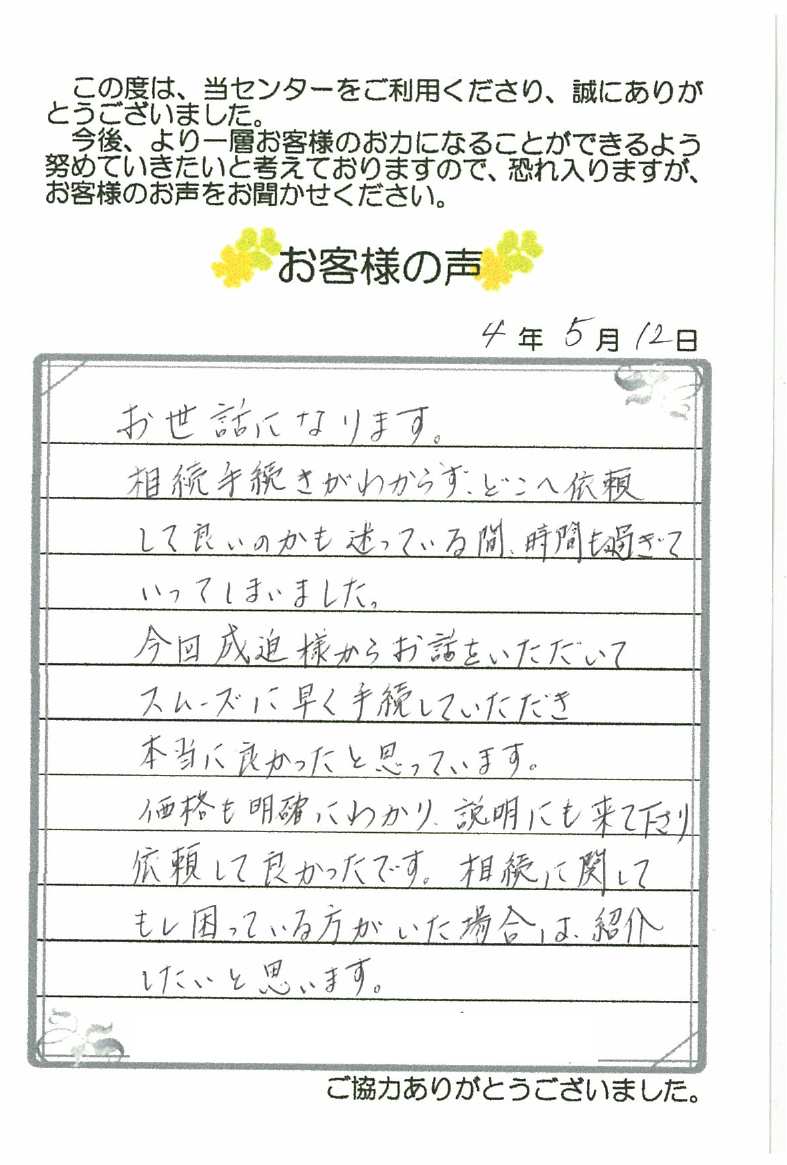 この度は、当センターをご利用くださり、誠にありが
とうございました。
今後、より一層お客様のお力になることができるよう
努めていきたいと考えておりますので、恐れ入りますが、
お客様のお声をお聞かせください。
お客様の声
4年5月12日
お世話になります。
相続手続きがわからず、どこへ依頼
して良いのかも迷っている間、時間も過ぎて
いってしまいました。
今回成迫様からお話をいただいて
スムーズに早く手続していただき
本当に良かったと思っています。
価格も明確にわかり、説明にも来て下さり
依頼して良かったです。相続に関して
もし困っている方がいた場合は、紹介
したいと思います。
ご協力ありがとうございました。